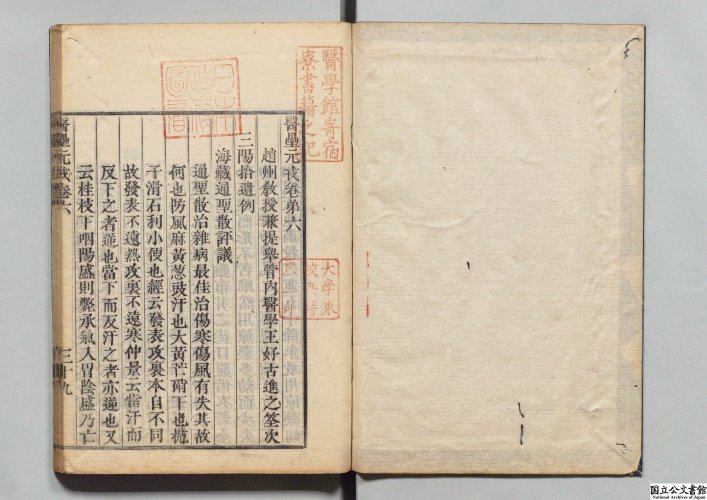 醫壘元戎卷第六
趙州敎授兼提舉管內醫學王好古進之筌次
三陽拾遺例
海藏通聖散評議
通聖散治雜病最佳治傷寒傷風有失其故
何也防風麻黃葱豉汗也大黃芒硝下也梔
子滑石利小便也經云發表攻裏本自不同
故發表不遠熱攻裏不遠寒仲景云當汗而
反下之者逆也當下而反汗之者亦逆也又
云桂枝下咽陽盛則斃承氣入胃陰盛乃亡
醫壘元戎卷六
三十九
醫學館寄宿
寮書籍之記
日本
政府
圖書
大學東
校典籍
国立公文書館
National Archives of Japan